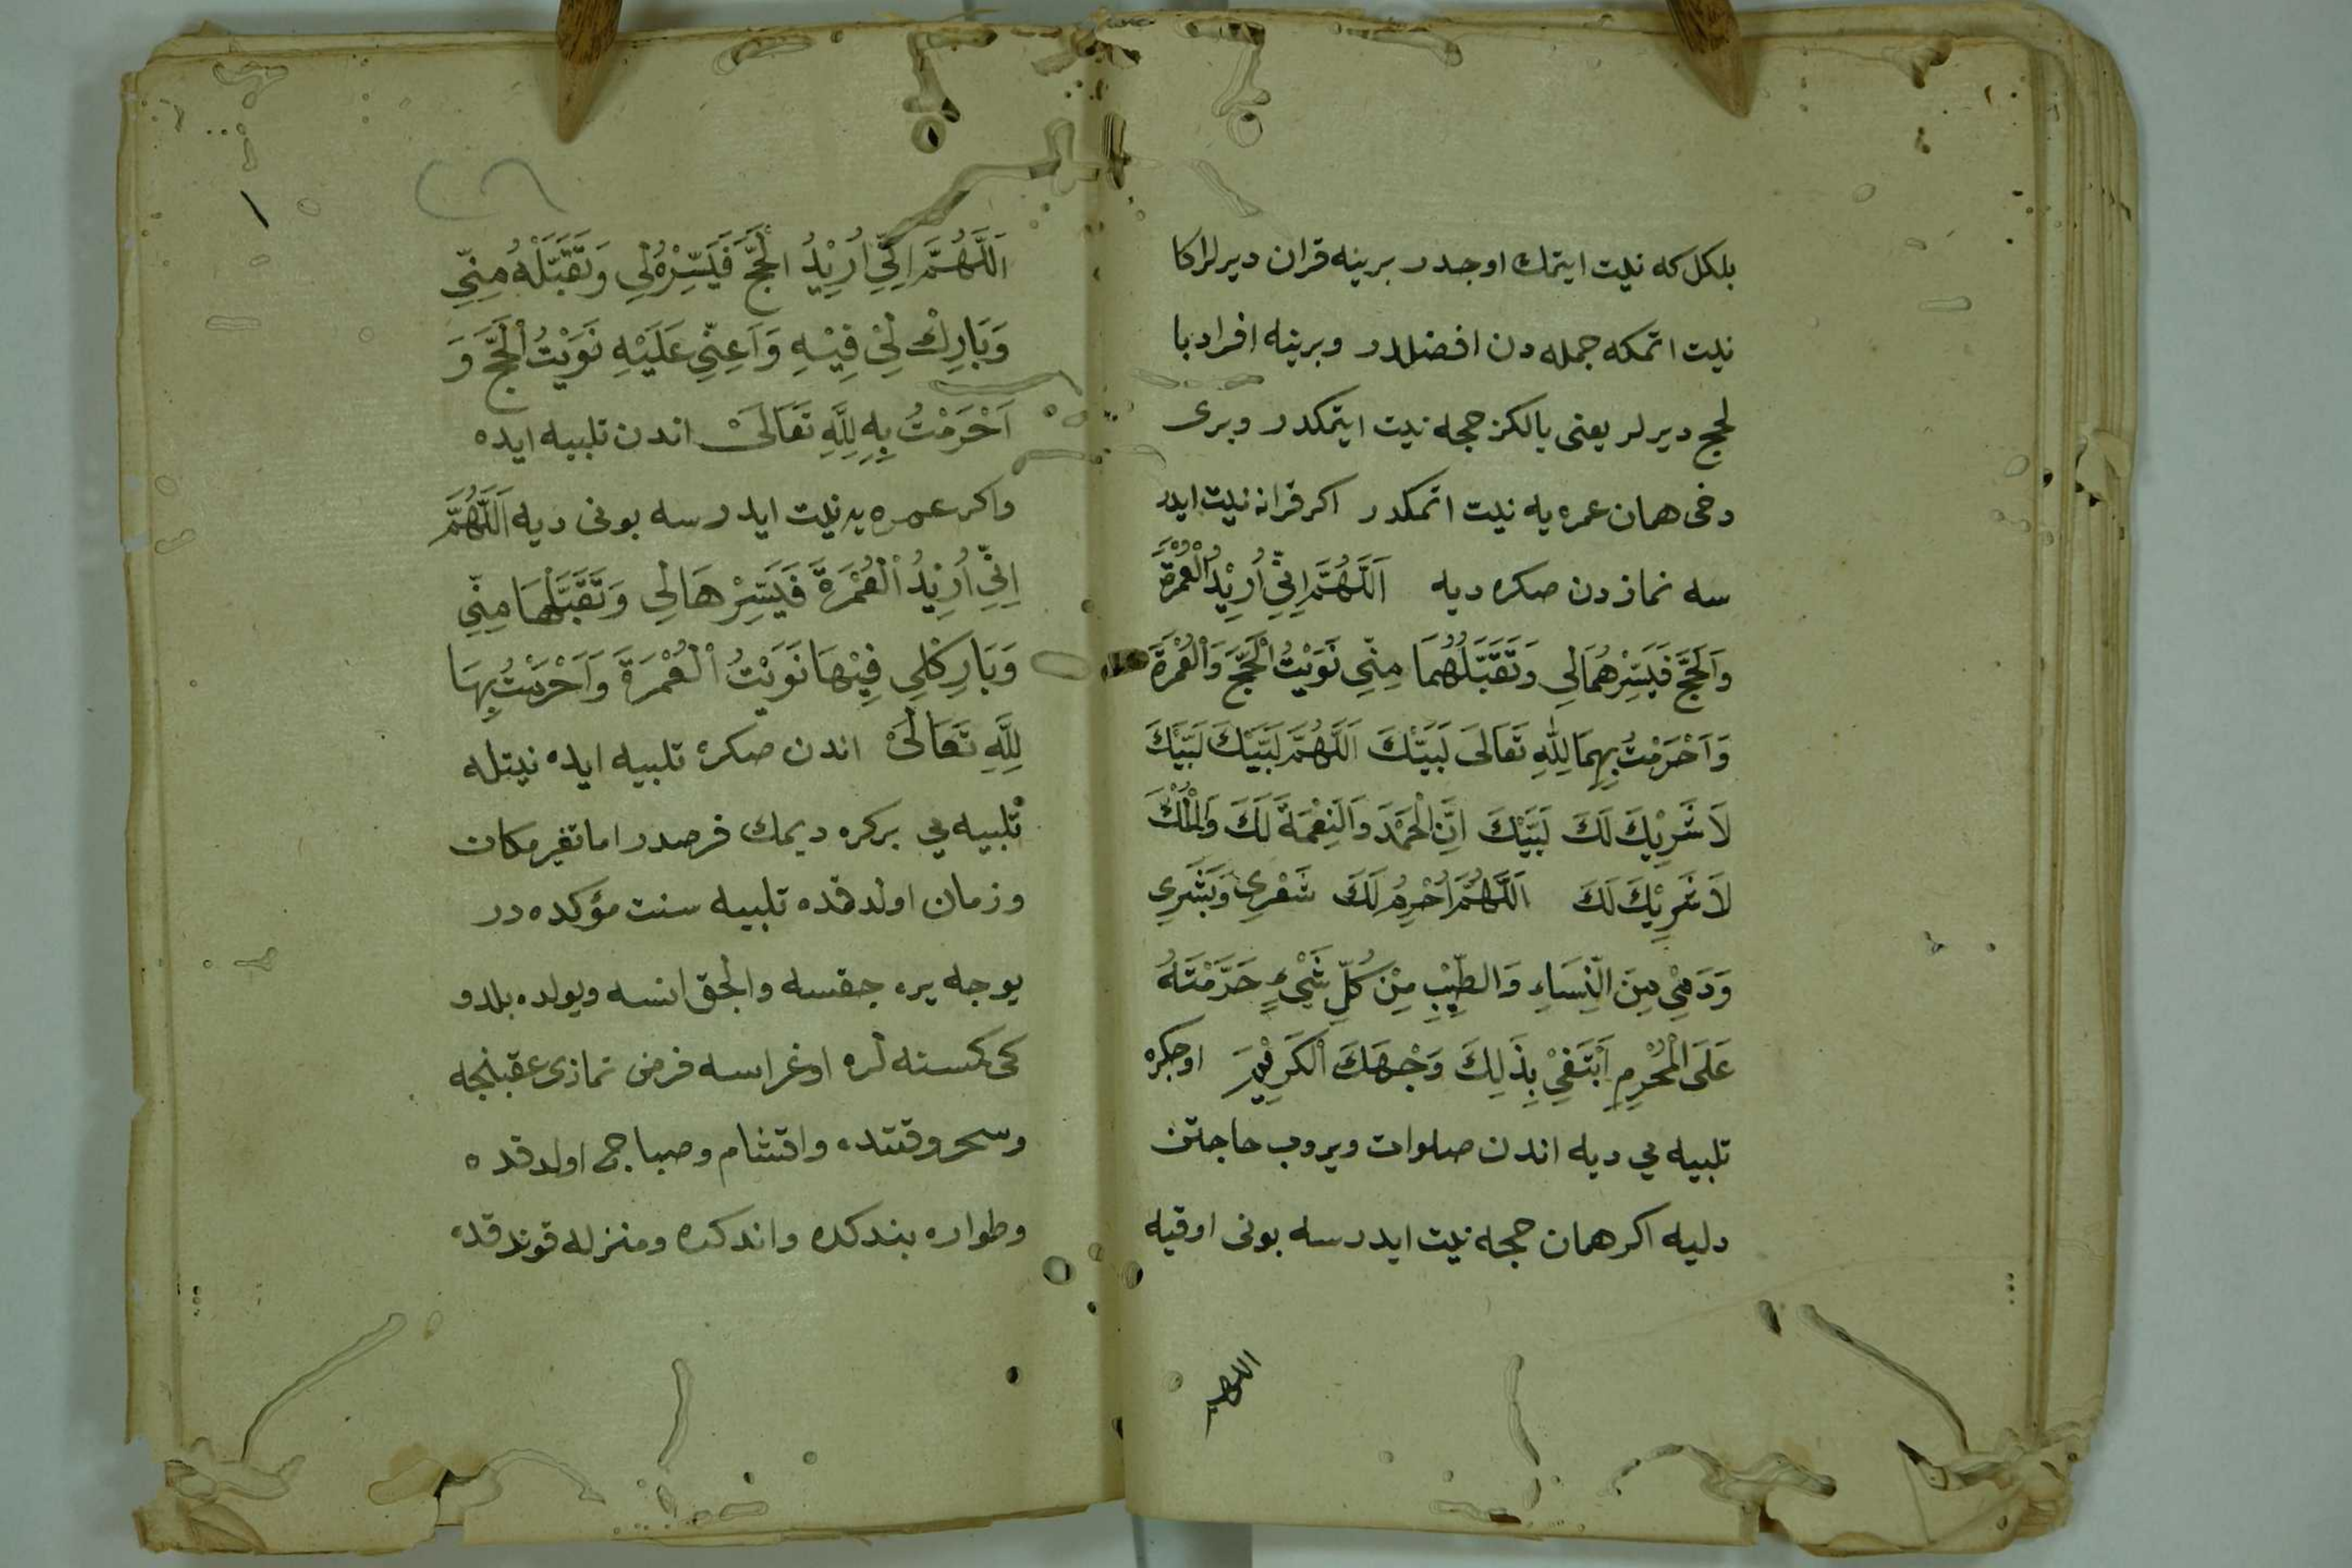 بلكل كه نيت ايتمك اوجدر برينه قران ديرلر اكا
نيت اتمكه جمله دن افضلدر وبرينه افراد با
لحج ديرلر يعنى يالكز حجه نيت ايتمكدر وبرى
دخى همان عمره يه نيت اتمكدر اكر قرانه نيت ايدر
سه نمازدن صكره ديه اَللَّهُمَّ اِنِّي اُرِيْدُ الْعُمْرَةَ
وَالْحَجَّ فَيَسِّرْهُمَالِي وَتَقَبَّلْهُمَا مِنِّي نَوَيْتُ الْحَجَّ وَالْعُمْرَةَ
وَاَحْرَمْتُ بِهِمَا لِلّٰهِ تَعَالَى لَبَّيْكَ اَللَّهُمَّ لَبَّيْكَ لَبَّيْكَ
لَا شَرِيْكَ لَكَ لَبَّيْكَ اِنَّ الْحَمْدَ وَالنِّعْمَةَ لَكَ وَالْمُلْكَ
لَا شَرِيْكَ لَكَ اَللَّهُمَّ اُحْرِمُ لَكَ شَعْرِي وَبَشَرِي
وَدَمِيْ مِنَ النِّسَاءِ وَالطِّيْبِ مِنْ كُلِّ شَيْءٍ حَرَّمْتَهُ
عَلَى الْمُحْرِمِ اَبْتَغِيْ بِذَلِكَ وَجْهَكَ الْكَرِيْمَ اوجكره
تلبيه يي ديه اندن صلوات ويروب حاجتن
دليه اكر همان حجه نيت ايدرسه بونى اوقيه
اللهم
اَللَّهُمَّ اِنِّي اُرِيْدُ الْحَجَّ فَيَسِّرْهُ لِي وَتَقَبَّلْهُ مِنِّي
وَبَارِكْ لِيْ فِيْهِ وَاَعِنِّي عَلَيْهِ نَوَيْتُ الْحَجَّ وَ
اَحْرَمْتُ بِهِ لِلَّهِ تَعَالَىْ اندن تلبيه ايده
واكر عمره يه نيت ايدرسه بونى ديه اَللَّهُمَّ
اِنِّي اُرِيْدُ الْعُمْرَةَ فَيَسِّرْهَا لِي وَتَقَبَّلْهَا مِنِّي
وَبَارِكْ لِي فِيْهَا نَوَيْتُ الْعُمْرَةَ وَاَحْرَمْتُ بِهَا
لِلَّهِ تَعَالَىْ اندن صكره تلبيه ايده نيتله
تلبيه يي بركره ديمك فرصدر اما تغير مكان
وزمان اولدقده تلبيه سنت مؤكده در
يوجه يره جقسه والجق انسه ويولده بلدو
كى كسنه لره اوغراسه فرض نمازى عقبنجه
وسحر وقتنده واقشام وصباح اولدقده
وطواره بندكده واندكده ومنزله قوندقده